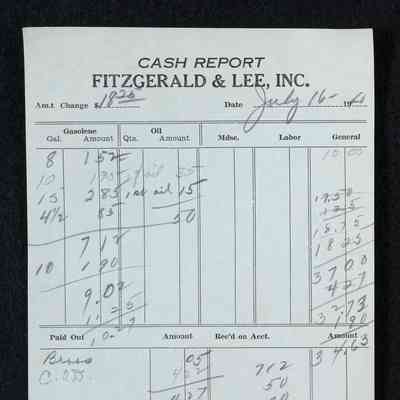 CASH REPORT
FITZGERALD & LEE, INC.
Amt. Change $ 18 25 Date July 16- 19
Gasolene Oil
Gal. Amount Qts. Amount Mdse. Labor General
8 1 52 10 00
10 1 95 55
15 2 85 15 17.50
4 1/2 85 50 1 25
18.75
7 12 18 25
10 1 90 3 7 00
9.02 4 27
11 25 3 2.73
10.27 1 90
Paid Out Amount Rec'd on Acct. Amount
3 4.63
.05 7 12
4 22 50
4 27